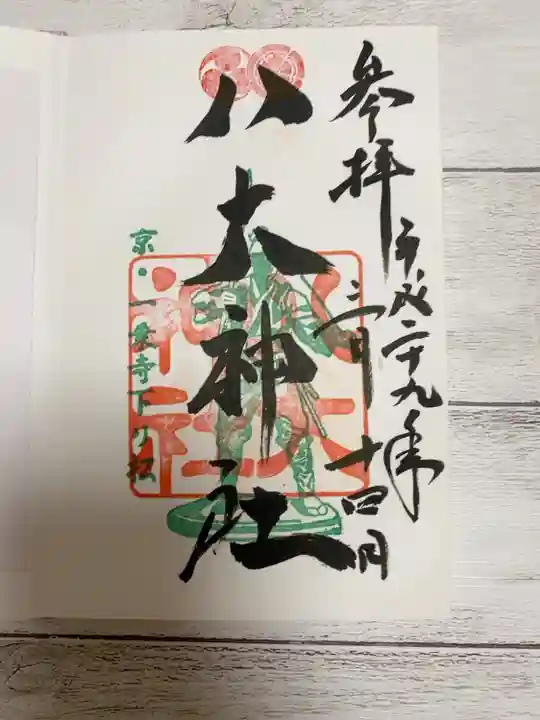 参拝 平成二十九年
三月十四日
八大神社
八大神社
京・一乗寺下り松